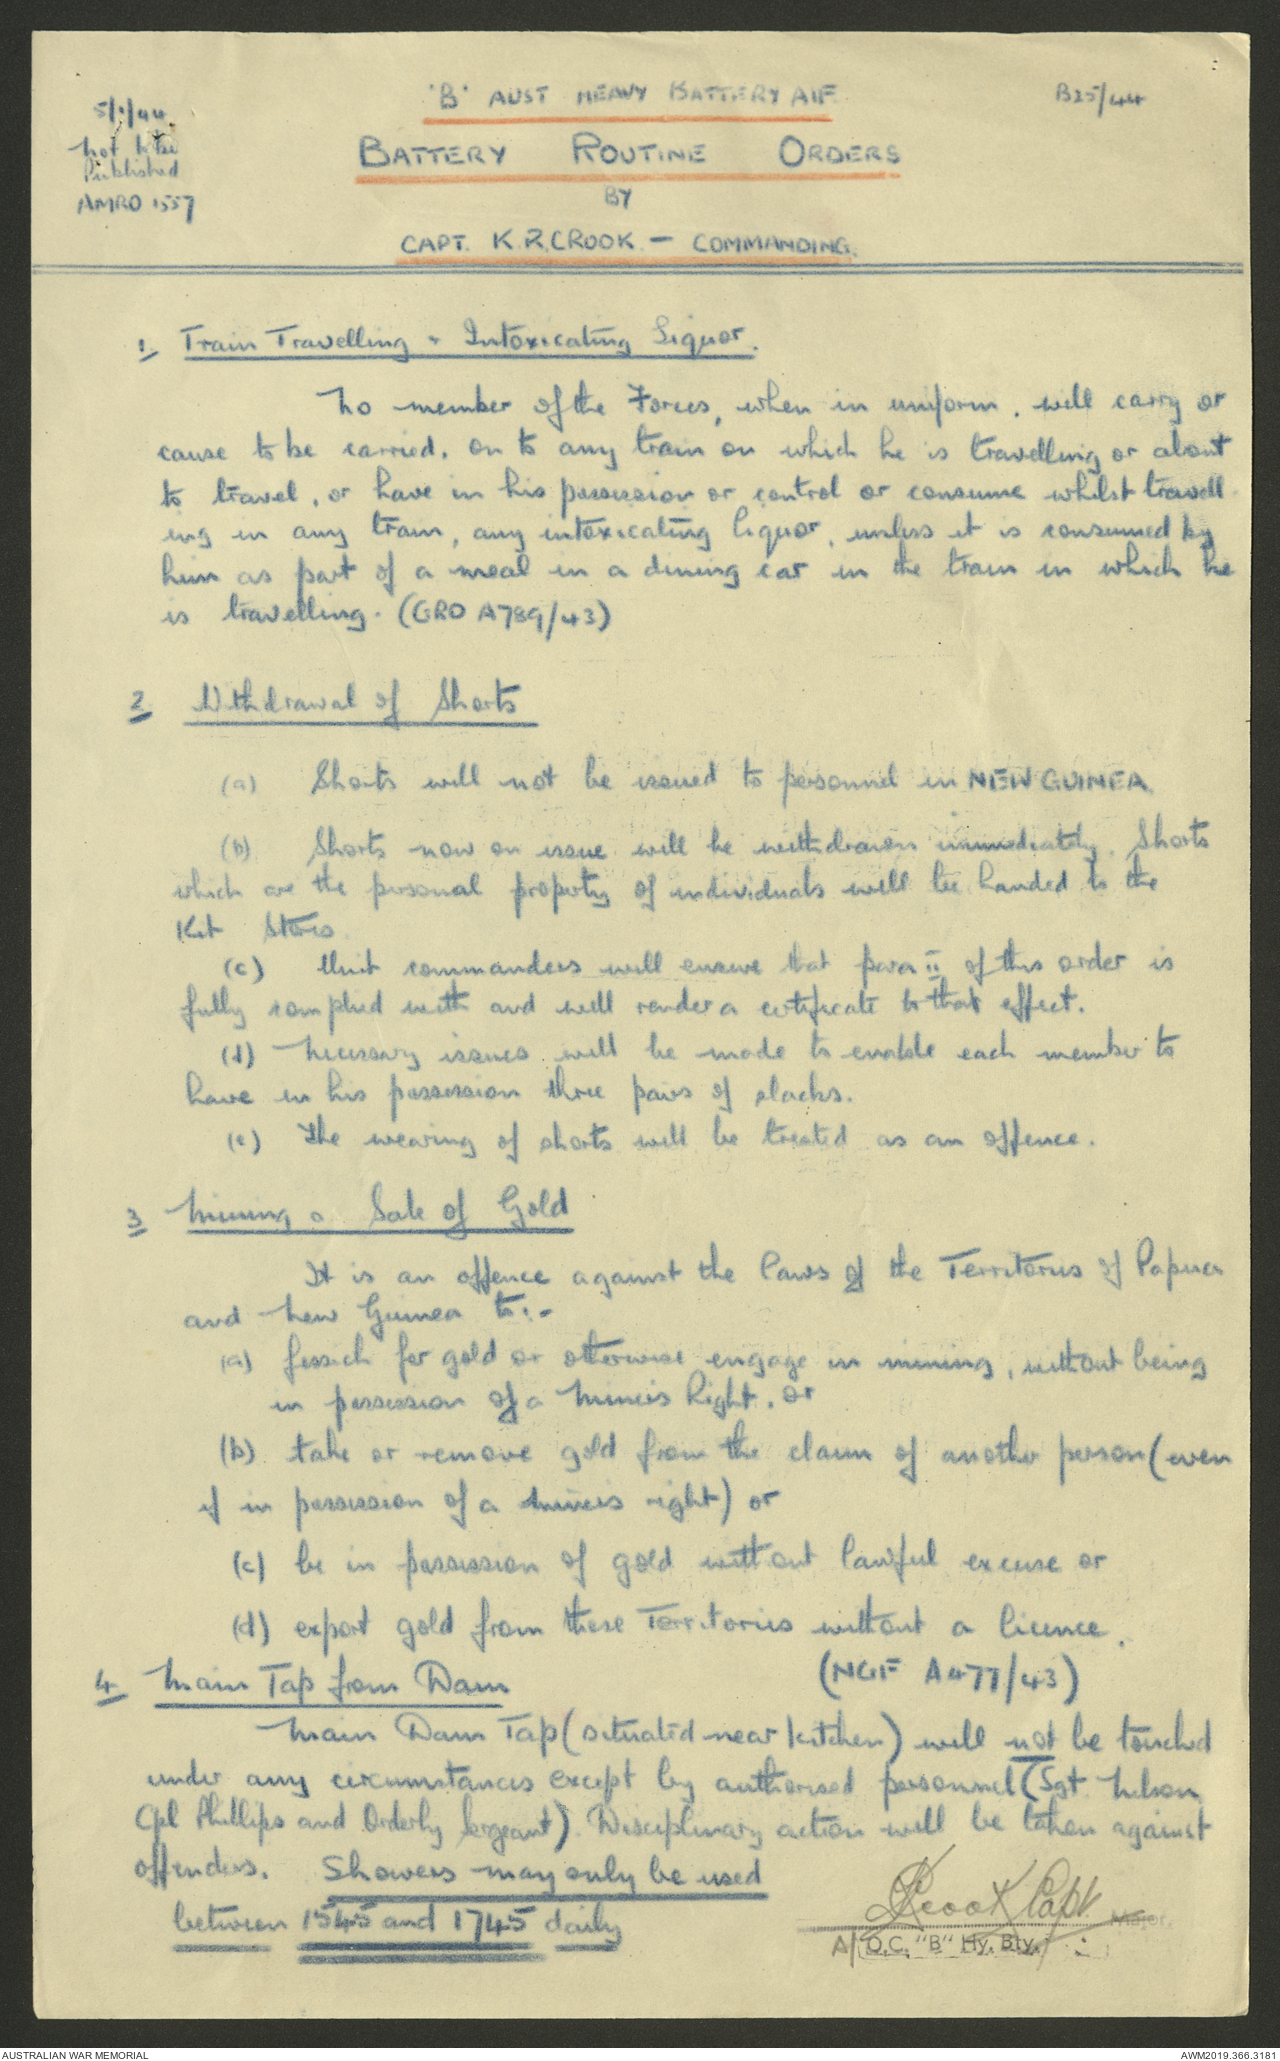 'B' AUST HEAVY BATTERY AIF
B25/44
5/1/44.
Not to be
Published
AMRO 1557
BATTERY ROUTINE ORDERS
BY
CAPT. K.R. CROOK. - COMMANDING.
1. Train Travelling - Intoxicating Liquor.
No member of the Forces, when in uniform, will carry or
cause to be carried, on to any train on which he is travelling or about
to travel, or have in his possession or control or consume whilst travell
ing in any train, any intoxicating liquor, unless it is consumed by
him as part of a meal in a dining car in the train in which he
is travelling. (GRO A789/43)
2. Withdrawal of Shorts
(a) Shorts will not be issued to personnel in NEW GUINEA.
(b) Shorts now on issue will be withdrawn immediately. Shorts
which are the personal property of individuals will be handed to the
Kit Store.
(c) Unit commanders will ensure that para ii of this order is
fully complied with and will render a certificate to that effect.
(d) Necessary issues will be made to enable each member to
have in his possession three pairs of slacks.
(e) The wearing of shorts will be treated as an offence.
3 Mining & Sale of Gold
It is an offence against the laws of the Territories of Papua
and New Guinea to:-
(a) fossick for gold or otherwise engage in mining, without being
in possession of a Miners Right, or
(b) take or remove gold from the claim of another person (even
if in possession of a miners right) or
(c) be in possession of gold without lawful excuse or
(d) export gold from these Territories without a licence.
(NGF A477/43)
4. Main Tap from Dam
Main Dam Tap (situated near kitchen) will not be touched
under any circumstances except by authorised personnel (Sgt Nelson
Cpl Phillips and Orderly Sergeant). Disciplinary action will be taken against
offenders. Showers may only be used
between 1545 and 1745 daily
KRCrook Capt
Major.
A/ O.C. "B" Hy. Bty.
AUSTRALIAN WAR MEMORIAL
AWM2019.366.3181